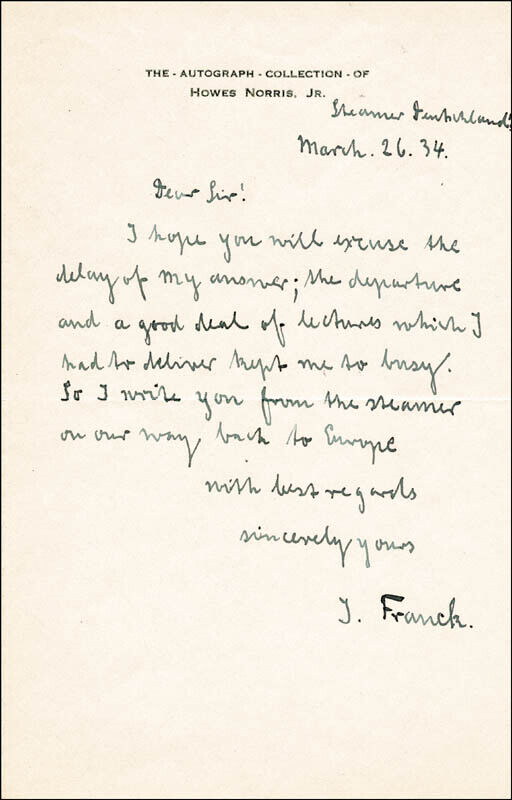 THE - AUTOGRAPH - COLLECTION - OF
HOWES NORRIS, JR.
Steamer Deutschland
March. 26. 34.
Dear Sir!
I hope you will excuse the
delay of my answer; the departure
and a good deal of lectures which I
had to deliver kept me to busy.
So I write you from the steamer
on our way back to Europe
with best regards
sincerely yours
J. Franck.